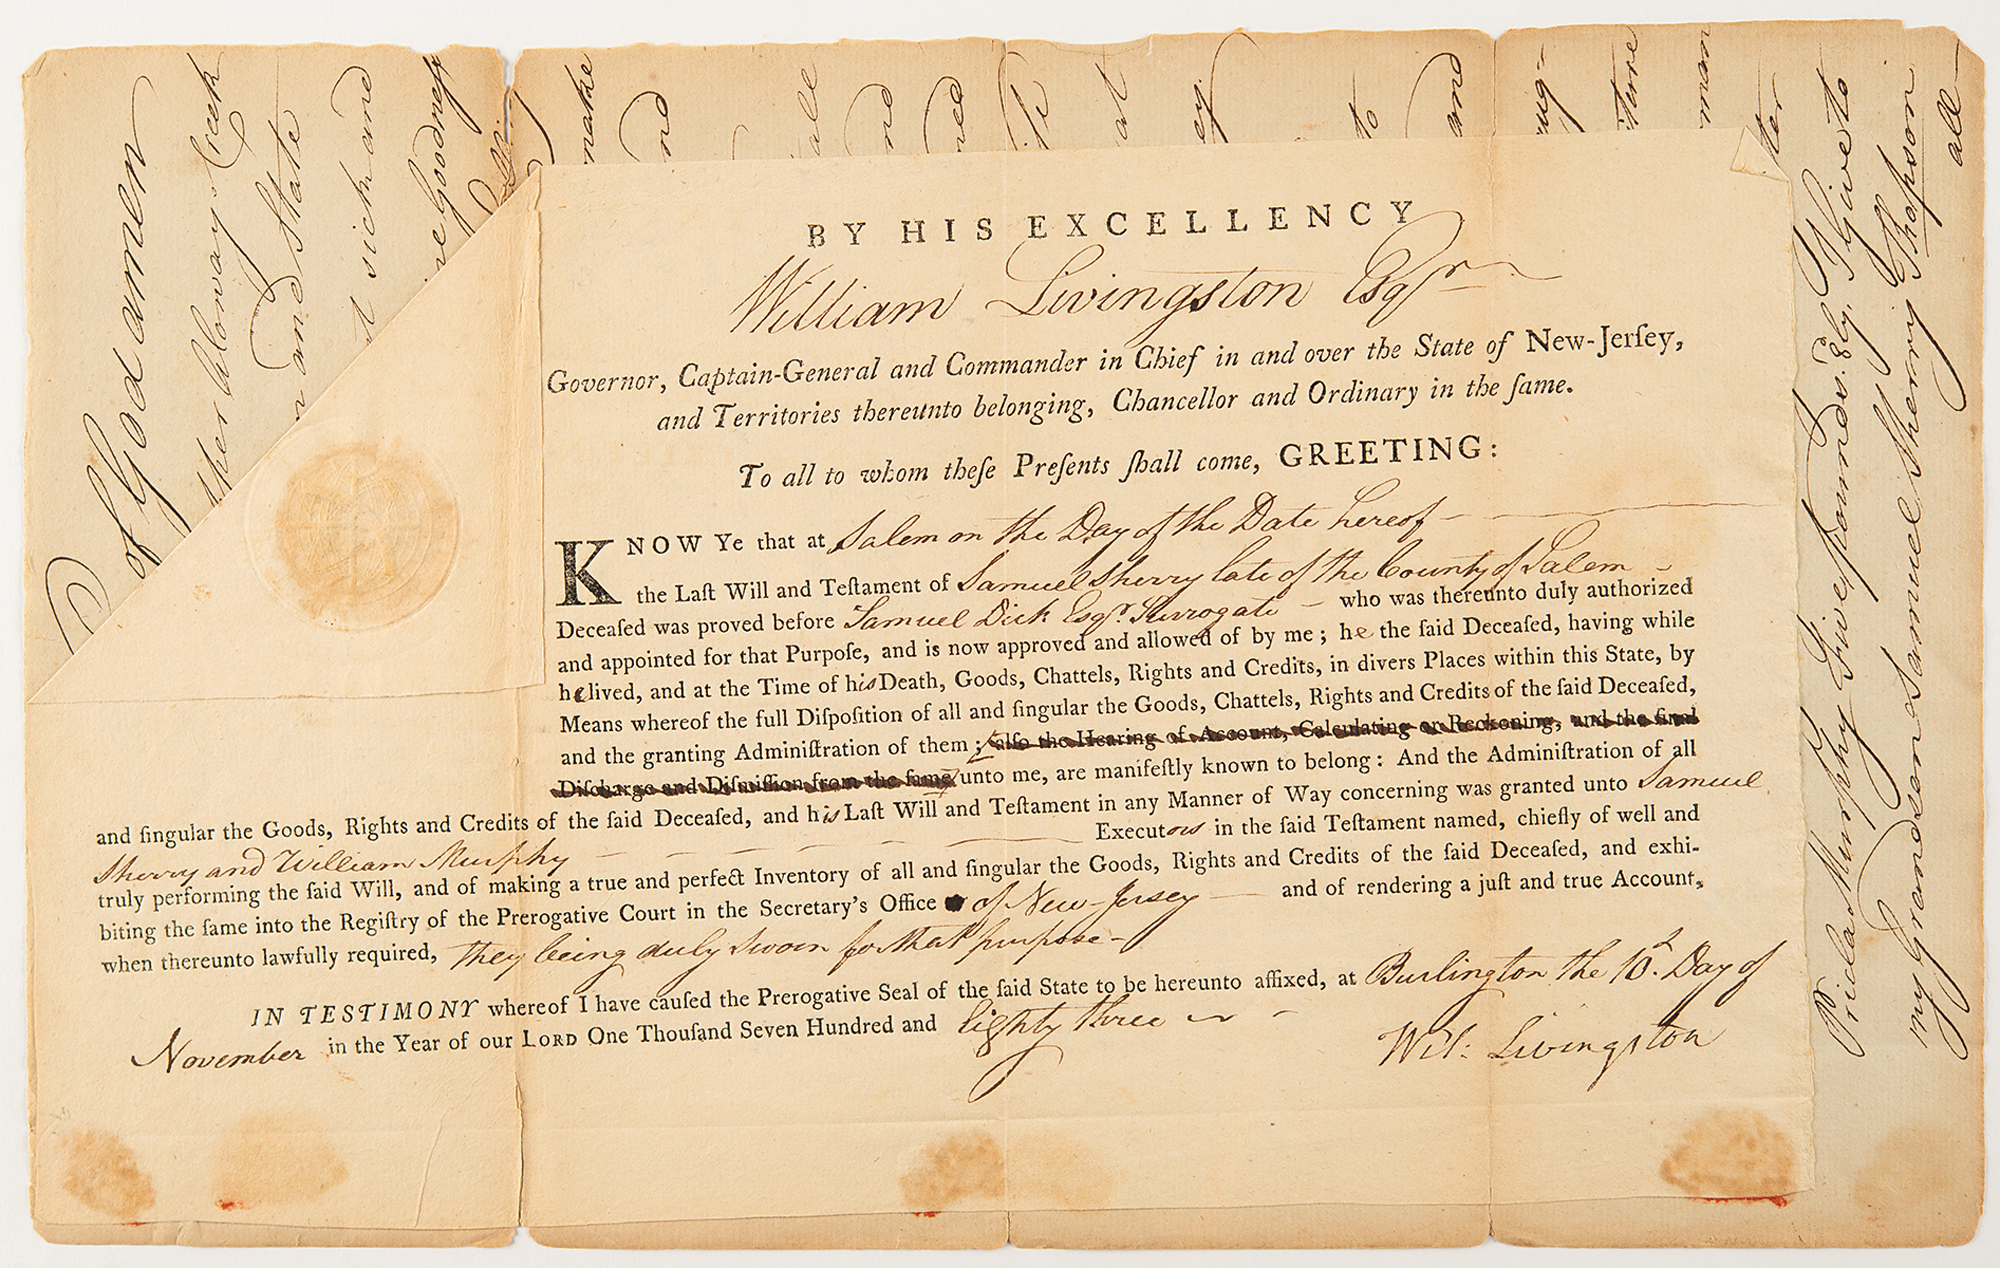 BY HIS EXCELLENCY
William Livingston Esqr
Governor, Captain-General and Commander in Chief in and over the State of New-Jerſey,
and Territories thereunto belonging, Chancellor and Ordinary in the ſame.
To all to whom theſe Preſents ſhall come, GREETING:
KNOW Ye that at Salem on the Day of the Date hereof
the Laſt Will and Teſtament of Samuel Sherry late of the County of Salem
Deceaſed was proved before Samuel Dick Esqr. Surrogate who was thereunto duly authorized
and appointed for that Purpoſe, and is now approved and allowed of by me; he the ſaid Deceaſed, having while
he lived, and at the Time of his Death, Goods, Chattels, Rights and Credits, in divers Places within this State, by
Means whereof the full Diſpoſition of all and ſingular the Goods, Chattels, Rights and Credits of the ſaid Deceaſed,
and the granting Adminiſtration of them; alſo the Hearing of Account, Calculating or Reckoning, and the final
Diſcharge and Diſmiſſion from the ſame unto me, are manifeſtly known to belong: And the Adminiſtration of all
and ſingular the Goods, Rights and Credits of the ſaid Deceaſed, and his Laſt Will and Teſtament in any Manner of Way concerning was granted unto Samuel
Sherry and William Murphy Executors in the ſaid Teſtament named, chiefly of well and
truly performing the ſaid Will, and of making a true and perfect Inventory of all and ſingular the Goods, Rights and Credits of the ſaid Deceaſed, and exhi-
biting the ſame into the Regiſtry of the Prerogative Court in the Secretary's Office of New-Jersey and of rendering a juſt and true Account,
when thereunto lawfully required, they being duly sworn for that purpose-
IN TESTIMONY whereof I have cauſed the Prerogative Seal of the ſaid State to be hereunto affixed, at Burlington the 10.th Day of
November in the Year of our LORD One Thouſand Seven Hundred and Eighty three
Wil: Livingston
of God amen
Creek
and State
sick and
Goodness
make
all
at
to
and
man
Murphy Five pounds. 8ly, I Give to
my Grandson Samuel Sherry Thopson
all